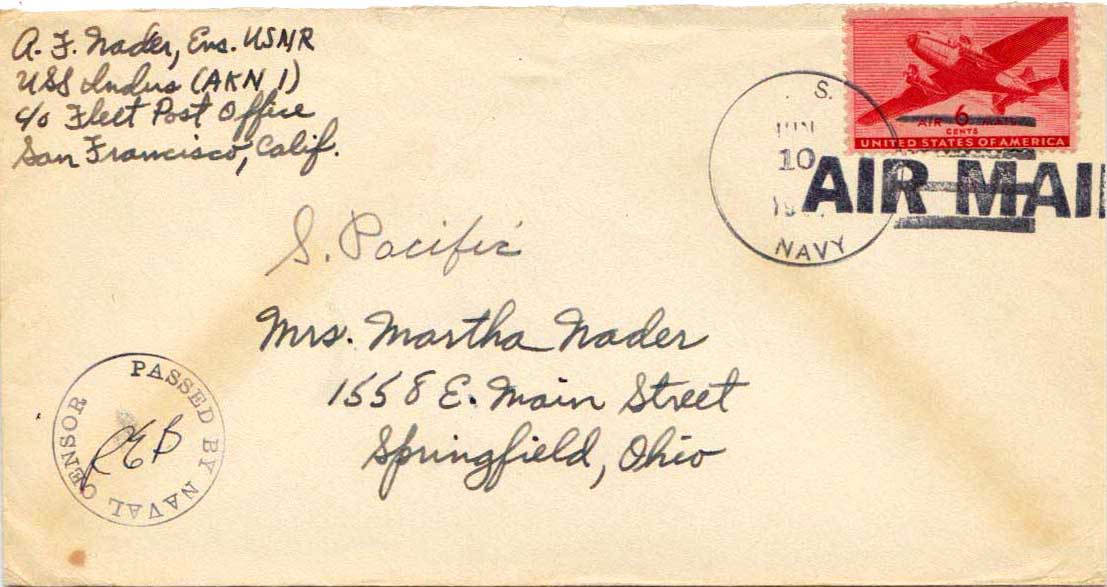 A. F. Nader, Ens. USNR
USS Indus (AKN 1)
c/o Fleet Post Office
San Francisco, Calif.
AIR 6 MAIL
CENTS
UNITED STATES OF AMERICA
S.
JUN
10
NAVY
AIR MAI
S. Pacific
Mrs. Martha Nader
1558 E. Main Street
Springfield, Ohio
PASSED BY NAVAL CENSOR
REB